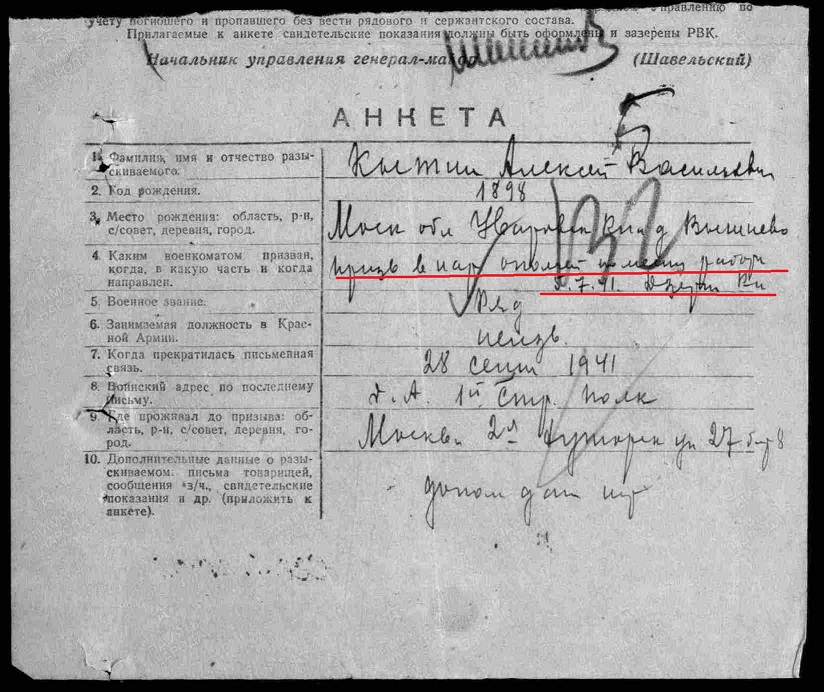 учету погибшего и пропавшего без вести рядового и сержантского состава.
Прилагаемые к анкете свидетельские показания должны быть оформлены и зазерены РВК.
Начальник управления генерал-майор (Шавельский)
АНКЕТА
1. Фамилия, имя и отчество разы-
скиваемого.
Костин Алексей Васильевич
2. Код рождения.
1898
3. Место рождения: область, р-н,
с/совет, деревня, город.
Моск обл д
4. Каким военкоматом призван,
когда, в какую часть и когда
направлен.
призв в нар ополчен по месту работы
7.41. Дзерж Рн
5. Военное звание.
Ряд
6. Занимаемая должность в Крас-
ной Армии.
неизв.
7. Когда прекратилась письменная
связь.
28 сент 1941
8. Воинский адрес по последнему
письму.
Д.А. 1й Стр. полк
9. Где проживал до призыва: об-
ласть, р-н, с/совет, деревня, го-
род.
Москва 2я ул 27
10. Дополнительные данные о разы-
скиваемом: письма товарищей,
сообщения в/ч., свидетельские
показания и др. (приложить к
анкете).
допол дан нет